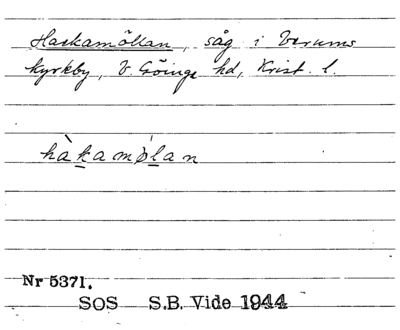 Hackamöllan, såg i Verums
kyrkby, V. Göinge hd, Krist. l.
hàkamølan
Nr 5371.
SOS S.B. Vide 1944